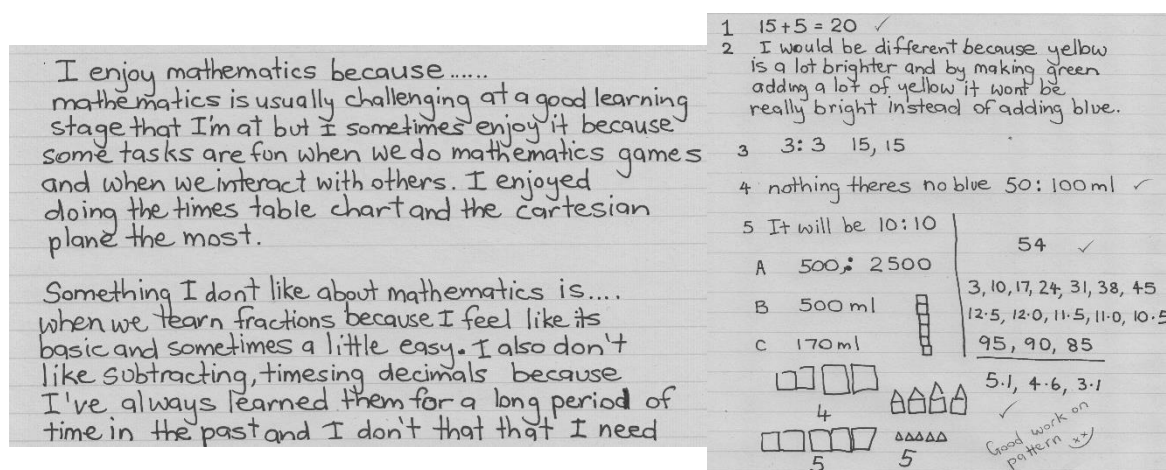 I enjoy mathematics because......
mathematics is usually challenging at a good learning
stage that I'm at but I sometimes enjoy it because
some tasks are fun when we do mathematics games
and when we interact with others. I enjoyed
doing the times table chart and the cartesian
plane the most.
Something I dont like about mathematics is....
when we learn fractions because I feel like its
basic and sometimes a little easy. I also don't
like subtracting, timesing decimals because
I've always learned them for a long period of
time in the past and I don't that that I need
1 15+5=20 ✓
2 I would be different because yellow
is a lot brighter and by making green
adding a lot of yellow it wont be
really bright instead of adding blue.
3 3:3 15, 15
4 nothing theres no blue 50:100ml ✓
5 It will be 10:10
A 500,: 2500
B 500 ml
C 170 ml
4
5
5
54 ✓
3, 10, 17, 24, 31, 38, 45
12.5, 12.0, 11.5, 11.0, 10.5
95, 90, 85
5.1, 4.6, 3.1
✓
Good work on
pattern xx